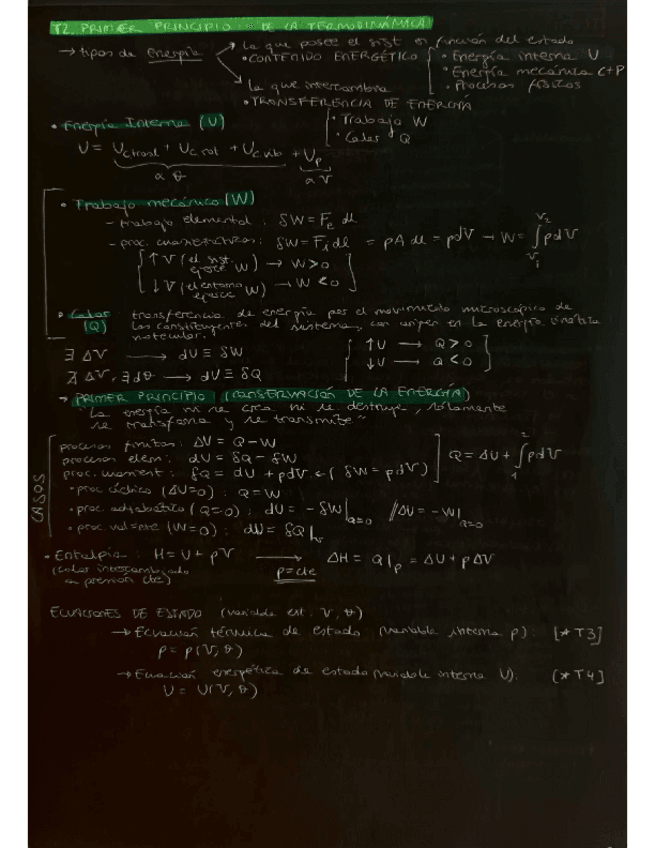 T2. PRIMER PRINCIPIO DE LA TERMODINÁMICA
→ tipos de Energía
la que posee el sist en función del estado
• CONTENIDO ENERGÉTICO
• Energía interna U
• Energía mecánica C+P
• Procesos físicos
la que intercambia
• TRANSFERENCIA DE ENERGÍA
• Trabajo W
• Calor Q
• Energía Interna (U)
U = Uctrasl + Uc rot + Uc vib + Up
α θ α V
• Trabajo mecánico (W)
- trabajo elemental : δW = Fe dl
- proc. cuasiestático: δW = Fi dl = pA dl = pdV → W = ∫ pdV
V2
V1
↑ V (el sist. ejerce W) → W > 0
↓ V (el entorno ejerce W) → W < 0
• Calor (Q) transferencia de energía por el movimiento microscópico de
los constituyentes del sistema, con origen en la energía cinética
molecular.
∃ ΔV → dU ≡ δW
∄ ΔV, ∃ dθ → dU ≡ δQ
↑U → Q > 0
↓U → Q < 0
→ PRIMER PRINCIPIO (CONSERVACIÓN DE LA ENERGÍA)
"La energía ni se crea ni se destruye, sólamente
se transforma y se transmite"
CASOS
procesos finitos: ΔU = Q - W
procesos elem: dU = δQ - δW
proc. cuasiest : δQ = dU + pdV ← ( δW = pdV )
Q = ΔU + ∫₁² pdV
• proc cíclico (ΔU=0) : Q = W
• proc. adiabático (Q=0) : dU = - δW|Q=0 // ΔU = - W|Q=0
• proc vol=cte (W=0) : dU = δQ|V
• Entalpía : H = U + pV → p=cte ΔH = Q|p = ΔU + pΔV
(calor intercambiado
a presión cte)
ECUACIONES DE ESTADO (variable est: V, θ)
→ Ecuación térmica de estado (variable interna p): [* T3]
p = p(V, θ)
→ Ecuación energética de estado (variable interna U): [* T4]
U = U(V, θ)